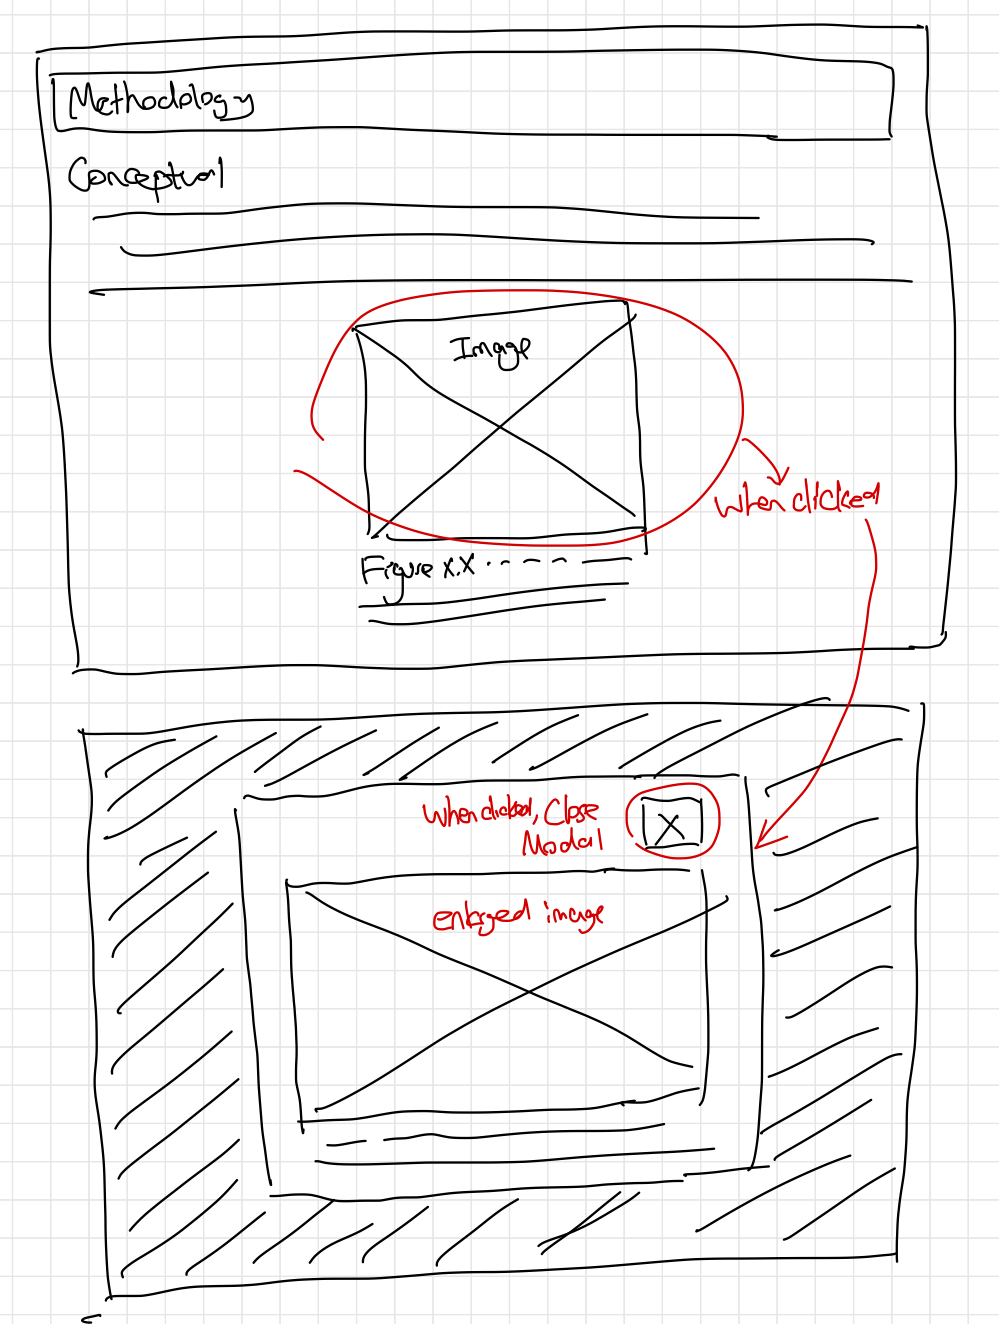 Methodology
Conceptual
Image
when clicked
Figure X.X
When clicked, Close
Modal
X
enlarged image